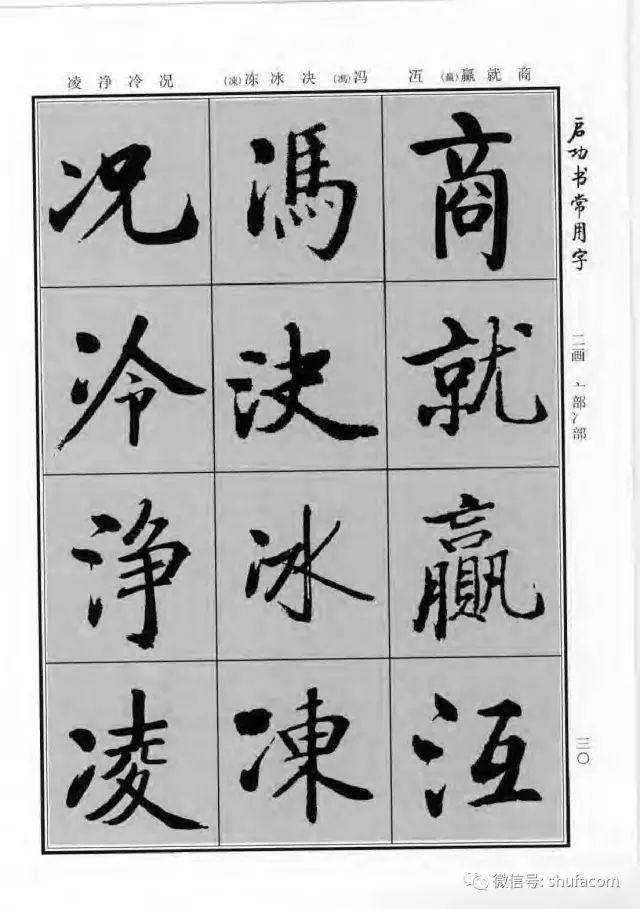 凌净冷况 (凍)冻冰决(馮)冯 沍(贏)赢就商
启功书常用字
二画 亠部冫部
三〇
商就贏沍
馮决冰凍
况冷净凌
微信号: shufacom